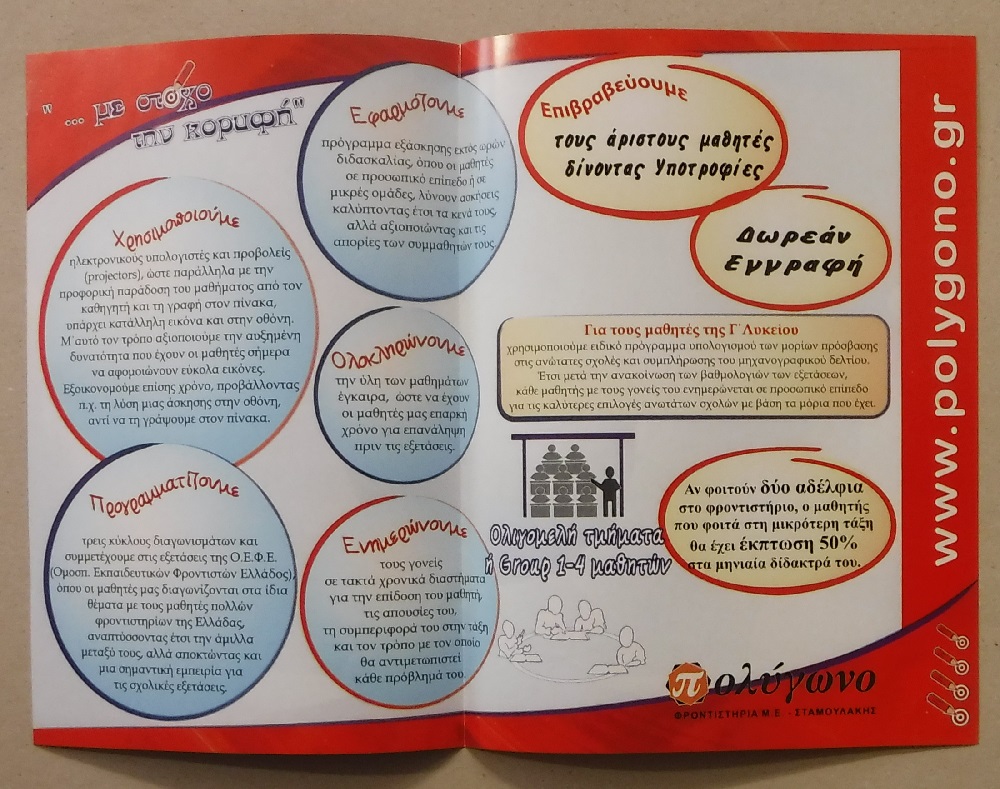 "... με στόχο
την κορυφή"
Χρησιμοποιούμε
ηλεκτρονικούς υπολογιστές και προβολείς
(projectors), ώστε παράλληλα με την
προφορική παράδοση του μαθήματος από τον
καθηγητή και τη γραφή στον πίνακα,
υπάρχει κατάλληλη εικόνα και στην οθόνη.
Μ΄αυτό τον τρόπο αξιοποιούμε την αυξημένη
δυνατότητα που έχουν οι μαθητές σήμερα
να αφομοιώνουν εύκολα εικόνες.
Εξοικονομούμε επίσης χρόνο, προβάλλοντας
π.χ. τη λύση μιας άσκησης στην οθόνη,
αντί να τη γράψουμε στον πίνακα.
Προγραμματίζουμε
τρεις κύκλους διαγωνισμάτων και
συμμετέχουμε στις εξετάσεις της Ο.Ε.Φ.Ε.
(Ομοσπ. Εκπαιδευτικών Φροντιστών Ελλάδος),
όπου οι μαθητές μας διαγωνίζονται στα ίδια
θέματα με τους μαθητές πολλών
φροντιστηρίων της Ελλάδας,
αναπτύσσοντας έτσι την άμιλλα
μεταξύ τους, αλλά αποκτώντας και
μια σημαντική εμπειρία για
τις σχολικές εξετάσεις.
Εφαρμόζουμε
πρόγραμμα εξάσκησης εκτός ωρών
διδασκαλίας, όπου οι μαθητές
σε προσωπικό επίπεδο ή σε
μικρές ομάδες, λύνουν ασκήσεις
καλύπτοντας έτσι τα κενά τους,
αλλά αξιοποιώντας και τις
απορίες των συμμαθητών τους.
Ολοκληρώνουμε
την ύλη των μαθημάτων
έγκαιρα, ώστε να έχουν
οι μαθητές μας επαρκή
χρόνο για επανάληψη
πριν τις εξετάσεις.
Ενημερώνουμε
τους γονείς
σε τακτά χρονικά διαστήματα
για την επίδοση του μαθητή,
τις απουσίες του,
τη συμπεριφορά του στην τάξη
και τον τρόπο με τον οποίο
θα αντιμετωπιστεί
κάθε πρόβλημά του.
Επιβραβεύουμε
τους άριστους μαθητές
δίνοντας Υποτροφίες
Δωρεάν
Εγγραφή
Για τους μαθητές της Γ΄ Λυκείου
χρησιμοποιούμε ειδικό πρόγραμμα υπολογισμού των μορίων πρόσβασης
στις ανώτατες σχολές και συμπλήρωσης του μηχανογραφικού δελτίου.
Έτσι μετά την ανακοίνωση των βαθμολογιών των εξετάσεων,
κάθε μαθητής με τους γονείς του ενημερώνεται σε προσωπικό επίπεδο
για τις καλύτερες επιλογές ανωτάτων σχολών με βάση τα μόρια που έχει.
Ολιγομελή τμήματα
ή Group 1-4 μαθητών
Αν φοιτούν δύο αδέλφια
στο φροντιστήριο, ο μαθητής
που φοιτά στη μικρότερη τάξη
θα έχει έκπτωση 50%
στα μηνιαία δίδακτρά του.
πολύγωνο
ΦΡΟΝΤΙΣΤΗΡΙΑ Μ.Ε. - ΣΤΑΜΟΥΛΑΚΗΣ
www.polygono.gr